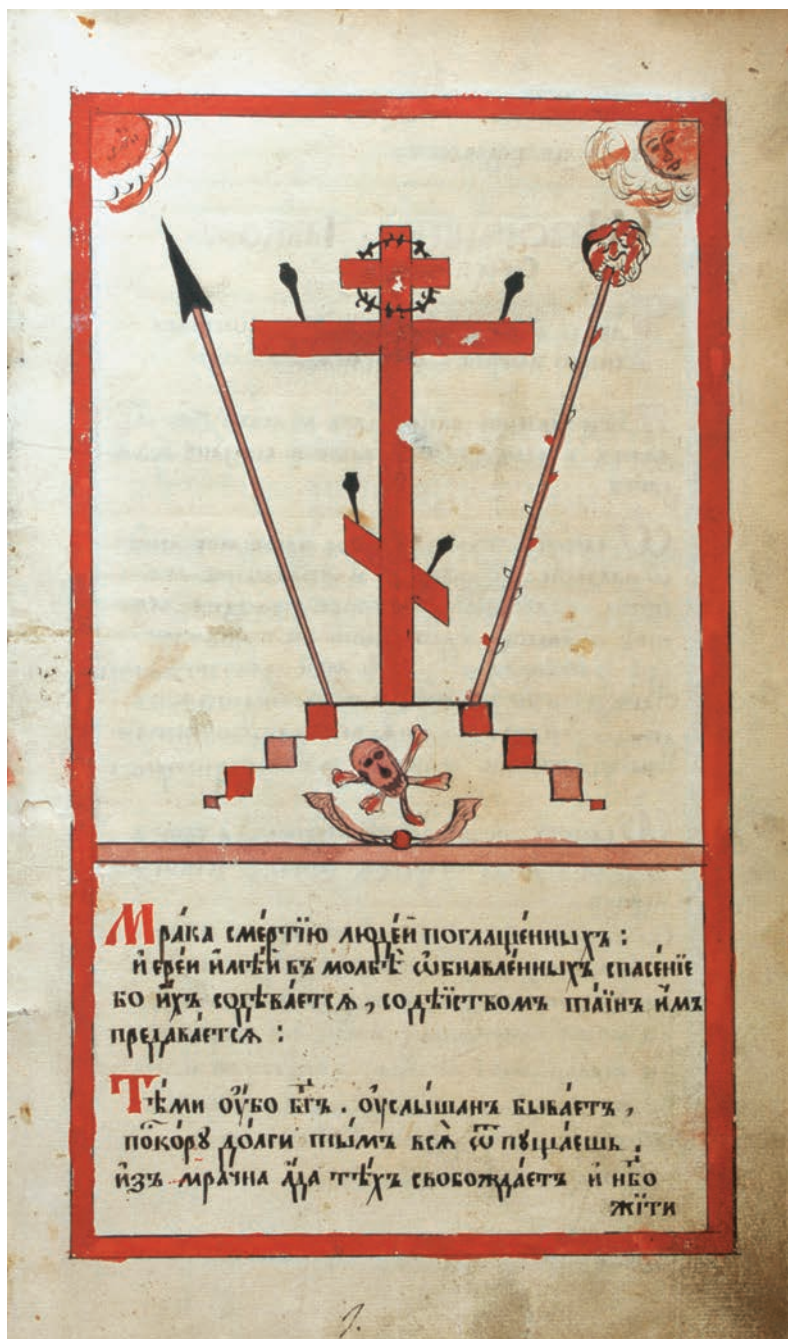 Мра́ка сме́ртїю люде́й поглаще́нныхъ :
и҆ ере́и и҆мѣ́й въ молбѣ̀ ѡ҆бнавле́нныхъ спасе́нїе
бо и҆́хъ содѣва́ется , содѣ́їствомъ та́инъ и҆̀мъ
предава́ется :
Тѣ́ми ᲂу҆́бо бг҃ъ . ᲂу҆слы́шанъ быва́етъ ,
по́кору до́лги ты́мъ всѧ̀ ѿпуща́ешь .
и҆зъ мра́чна а҆́да тѣ́хъ свобожда́етъ и нб҃о
жїти